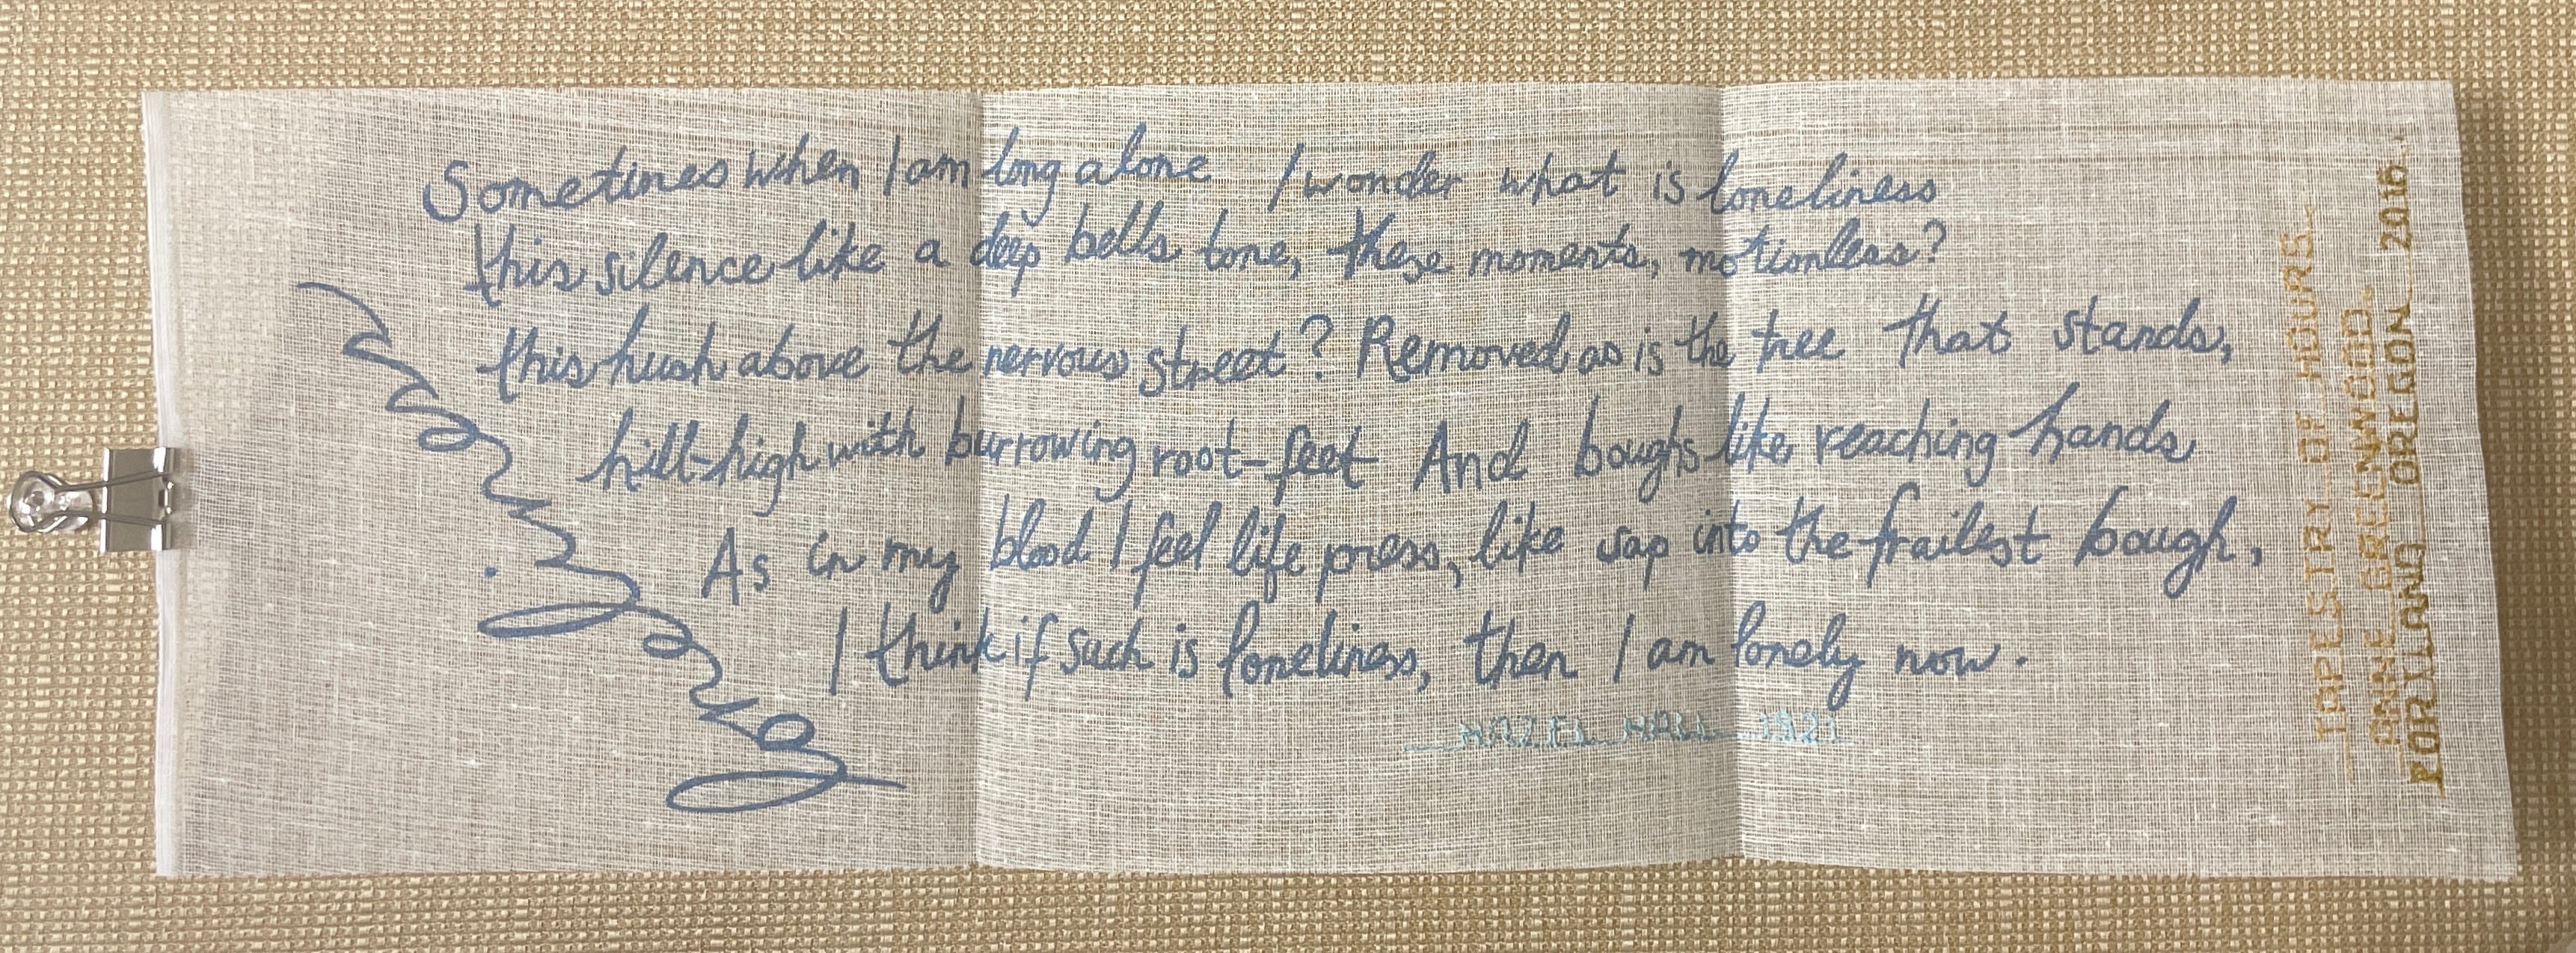 Sometimes when I am long alone I wonder what is loneliness
this silence like a deep bells tone, these moments, motionless?
this hush above the nervous street? Removed as is the tree that stands,
hill-high with burrowing root-feet And boughs like reaching hands
As in my blood I feel life press, like sap into the frailest bough,
I think if such is loneliness, then I am lonely now.
HAZEL HALL 1921
TAPESTRY OF HOURS
ANNE GREENWOOD
PORTLAND OREGON 2016